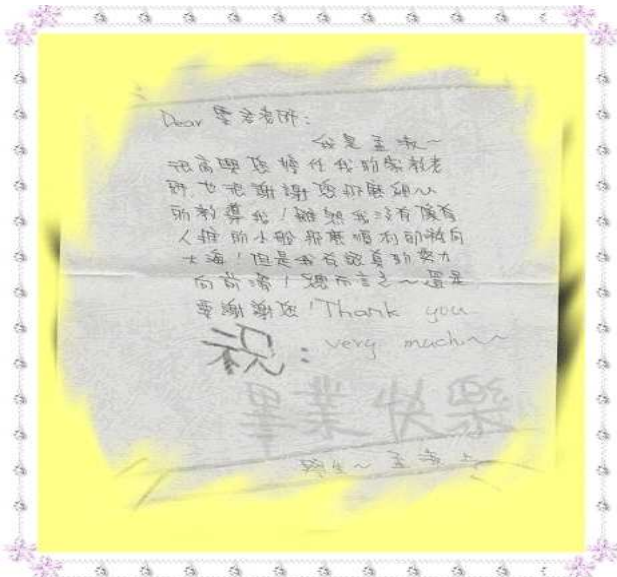 Dear 老師:
我是孟淑~
很高興您擔任我的家教老
師,也很謝謝您那麼細心
的教導我!雖然我沒有像有
人推的小船那麼順利的被向
大海!但是我有認真的努力
向前滑!總而言之~還是
要謝謝您!Thank you
祝: very much~~
畢業快樂
學生~孟淑上